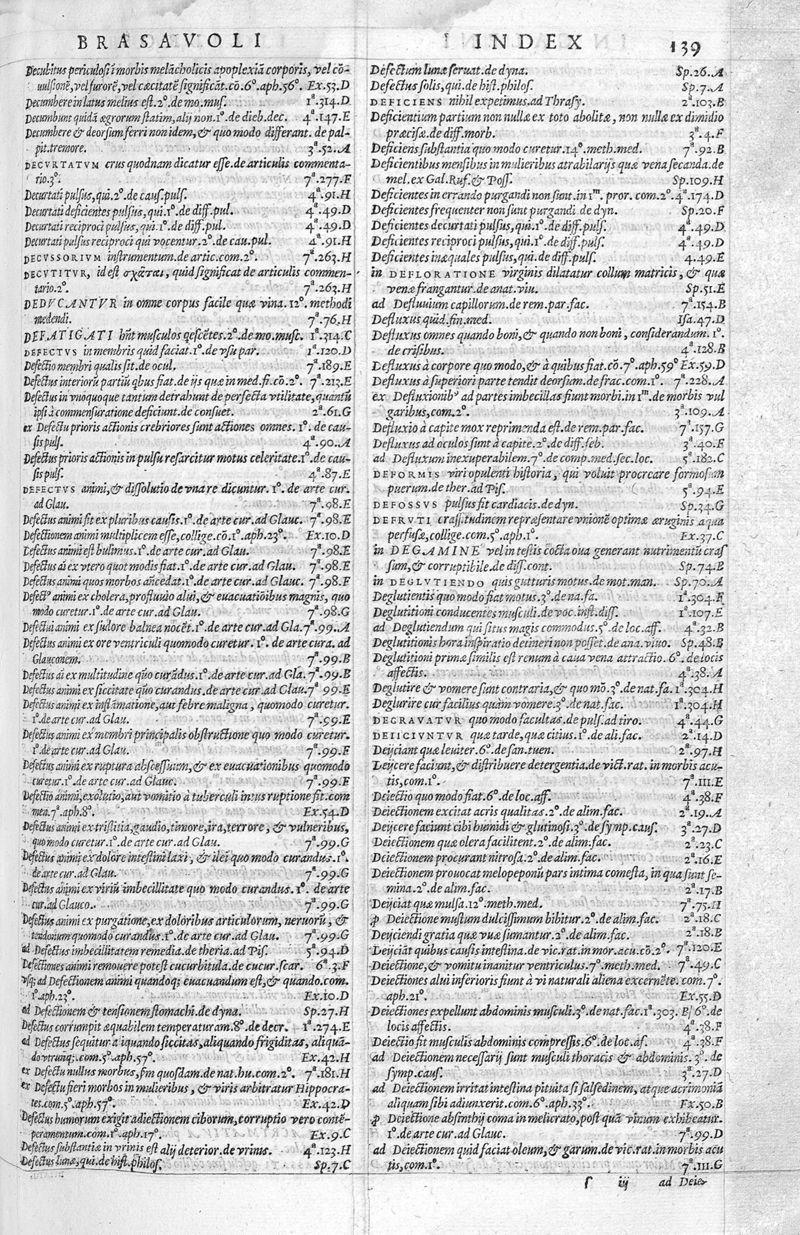 BRASAVOLI
Decubitus periculosi i morbis melãcholicis apoplexiã corporis, vel cõ-
uulsionē, vel furorē, vel cæcitatē significãt. cõ. 6º. aph. 56º. Ex. 53. D
Decumbere in latus melius est. 2º. de mo. mus. 1ª. 314. D
Decumbunt quidã ægrorum statim, alij non. 1º. de dieb. dec. 4ª. 147. E
Decumbere & deorsum ferri non idem, & quo modo differant. de pal-
pit. tremore. 3ª. 52. A
DECVRTATVM crus quodnam dicatur esse. de articulis commenta-
rio. 3º. 7ª. 277. F
Decurtati pulsus, qui. 2º. de caus. puls. 4ª. 91. H
Decurtati deficientes pulsus, qui. 1º. de diff. pul. 4ª. 49. D
Decurtati reciproci pulsus, qui. 1º. de diff. pul. 4ª. 49. D
Decurtati pulsus reciproci qui vocentur. 2º. de cau. pul. 4ª. 91. H
DECVSSORIVM instrumentum. de artic. com. 2º. 7ª. 263. H
DECVTITVR, id est σχᾶται, quid significat de articulis commen-
tario. 2º. 7ª. 263. H
DEDVCANTVR in omne corpus facile quæ vina. 12º. methodi
medendi. 7ª. 76. H
DEFATIGATI hñt musculos q̃escētes. 2º. de mo. musc. 1ª. 314. C
DEFECTVS in membris quid faciat. 1º. de vsu par. 1ª. 120. D
Defectio membri qualis sit. de ocul. 7ª. 189. E
Defectus interiorũ partiũ qbus fiat. de ijs quæ in med. fi. cõ. 2º. 7ª. 213. E
Defectus in vnoquoque tantum detrahunt de perfecta vtilitate, quantũ
ipsi à commensuratione deficiunt. de consuet. 2ª. 61. G
ex Defectu prioris actionis crebriores sunt actiones omnes. 1º. de cau-
sis puls. 4ª. 90. A
Defectus prioris actionis in pulsu resarcitur motus celeritate. 1º. de cau-
sis puls. 4ª. 87. E
DEFECTVS animi, & dissolutio de vna re dicuntur. 1º. de arte cur.
ad Glau. 7ª. 98. E
Defectus animi fit ex pluribus causis. 1º. de arte cur. ad Glauc. 7ª. 98. E
Defectionem animi multiplicem esse, collige. cõ. 1º. aph. 23º. Ex. 10. D
Defectus animi est bulimus. 1º. de arte cur. ad Glau. 7ª. 98. E
Defectus ai ex vtero quot modis fiat. 1º. de arte cur. ad Glau. 7ª. 98. E
Defectus animi quos morbos añcedat. 1º. de arte cur. ad Glauc. 7ª. 98. F
Defect⁹ animi ex cholera, profluuio alui, & euacuatiõibus magnis, quo
modo curetur. 1º. de arte cur. ad Glau. 7ª. 98. G
Defectui animi ex sudore balnea nocēt. 1º. de arte cur. ad Gla. 7ª. 99. A
Defectus animi ex ore ventriculi quomodo curetur. 1º. de arte cura. ad
Glauconem. 7ª. 99. B
Defectus ai ex multitudine quõ curãdus. 1º. de arte cur. ad Gla. 7ª. 99. B
Defectus animi ex siccitate quo curandus. de arte cur. ad Glau. 7ª. 99. E
Defectus animi ex inflãmatione, aut febre maligna, quomodo curetur.
1º. de arte cur. ad Glau. 7ª. 99. E
Defectus animi ex membri principalis obstructione quo modo curetur.
1º. de arte cur. ad Glau. 7ª. 99. F
Defectus animi ex ruptura abscessuum, & ex euacuationibus quomodo
curetur. 1º. de arte cur. ad Glauc. 7ª. 99. F
Defectio animi, exolutio, aut vomitio à tuberculi intus ruptione fit. com
men. 7º. aph. 8º. Ex. 54. D
Defectus animi ex tristitia, gaudio, timore, ira, terrore, & vulneribus,
quo modo curetur. 1º. de arte cur. ad Glau. 7ª. 99. G
Defectus animi ex dolore intestini laxi, & ilei quo modo curandus. 1º.
de arte cur. ad Glau. 7ª. 99. G
Defectus animi ex viriũ imbecillitate quo modo curandus. 1º. de arte
cur. ad Glauco. 7ª. 99. G
Defectus animi ex purgatione, ex doloribus articulorum, neruorũ, &
tendonium quomodo curandus. 1º. de arte cur. ad Glau. 7ª. 99. G
ad Defectus imbecillitatem remedia. de theria. ad Pis. 5ª. 94. D
Defectiones animi remouere potest cucurbitula. de cucur. scar. 6ª. 3. F
vsq; ad Defectionem animi quandoq; euacuandum est, & quando. com.
1º. aph. 23º. Ex. 10. D
ad Defectionem & tensionem stomachi. de dyna. Sp. 27. H
Defectus corrumpit æquabilem temperaturam. 8º. de decr. 1ª. 274. E
ad Defectus sequitur aliquando siccitas, aliquando frigiditas, aliquã-
do vtrunq;. com. 5º. aph. 57º. Ex. 42. H
ex Defectu nullus morbus, fm quosdam. de nat. hu. com. 2º. 7ª. 181. H
ex Defectu fieri morbos in mulieribus, & viris arbitratur Hippocra-
tes. com. 5º. aph. 57º. Ex. 42. D
Defectus humorum exigit adiectionem ciborum, corruptio vero contē-
peramentum. com. 1º. aph. 17º. Ex. 9. C
Defectus substantiæ in vrinis est alij deterior. de vrinis. 4ª. 123. H
Defectus lunæ, qui. de hist. philos. Sp. 7. C
INDEX 139
Defectum lunæ seruat. de dyna. Sp. 26. A
Defectus solis, qui. de hist. philos. Sp. 7. A
DEFICIENS nihil expetimus. ad Thrasy. 2ª. 103. B
Deficientium partium non nullæ ex toto abolitæ, non nullæ ex dimidio
præcisæ. de diff. morb. 3ª. 4. F
Deficiens substantia quo modo curetur. 14º. meth. med. 7ª. 92. B
Deficientibus mensibus in mulieribus atrabilarijs quæ vena secanda. de
mel. ex Gal. Ruf. & Poss. Sp. 109. H
Deficientes in errando purgandi non sunt. in 1ᵐ. pror. com. 2º. 4ª. 174. D
Deficientes frequenter non sunt purgandi. de dyn. Sp. 20. F
Deficientes decurtati pulsus, qui. 1º. de diff. puls. 4ª. 49. D
Deficientes reciproci pulsus, qui. 1º. de diff. puls. 4ª. 49. D
Deficientes inæquales pulsus, qui. de diff. puls. 4. 49. E
in DEFLORATIONE virginis dilatatur collum matricis, & quæ
venæ frangantur. de anat. viu. Sp. 51. E
ad Defluuium capillorum. de rem. par. fac. 7ª. 154. B
Defluxus quid. fin. med. Isa. 47. D
Defluxus omnes quando boni, & quando non boni, considerandum. 1º.
de crisibus. 4ª. 128. B
Defluxus à corpore quo modo, & à quibus fiat. cõ. 7º. aph. 59º Ex. 59. D
Defluxus à superiori parte tendit deorsum. de frac. com. 1º. 7ª. 228. A
ex Defluxionib⁹ ad partes imbecillas fiunt morbi. in 1ᵐ. de morbis vul
garibus, com. 2º. 3ª. 109. A
Defluxio à capite mox reprimenda est. de rem. par. fac. 7ª. 157. G
Defluxus ad oculos sunt à capite. 2º. de diff. feb. 3ª. 40. F
ad Defluxum inexuperabilem. 7º. de comp. med. sec. loc. 5ª. 182. C
DEFORMIS viri opulenti historia, qui voluit procreare formosum
puerum. de ther. ad Pis. 5ª. 94. E
DEFOSSVS pulsus fit cardiacis. de dyn. Sp. 34. G
DEFRVTI crassitudinem repræsentare vnionē optimæ æruginis aqua
perfusæ, collige. com. 5º. aph. 1º. Ex. 37. C
in DEGAMINE vel in testis cocta oua generant nutrimentũ cras
sum, & corruptibile. de diss. cont. Sp. 74. B
in DEGLVTIENDO quis gutturis motus. de mot. man. Sp. 70. A
Deglutientis quo modo fiat motus. 3º. de na. fa. 1ª. 304. F
Deglutitioni conducentes musculi. de voc. inst. diss. 1ª. 107. E
ad Deglutiendum qui situs magis commodus. 5º. de loc. aff. 4ª. 32. B
Deglutitionis hora inspiratio detineri non posset. de ana. viuo. Sp. 48. B
Deglutitioni primæ similis est renum à caua vena attractio. 6º. de locis
affectis. 4ª. 38. A
Deglutire & vomere sunt contraria, & quo mõ. 3º. de nat. fa. 1ª. 304. H
Deglutire cur facilius quàm vomere. 3º. de nat. fac. 1ª. 304. H
DEGRAVATVR quo modo facultas. de puls. ad tiro. 4ª. 44. G
DEIICIVNTVR quæ tarde, quæ citius. 1º. de ali. fac. 2ª. 14. D
Deijciant quæ leuiter. 6º. de san. tuen. 2ª. 97. H
Deijcere faciunt, & distribuere detergentia. de vict. rat. in morbis acu-
tis, com. 1º. 7ª. 111. E
Deiectio quo modo fiat. 6º. de loc. aff. 4ª. 38. F
Deiectionem excitat acris qualitas. 2º. de alim. fac. 2ª. 19. A
Deijcere faciunt cibi humidi & glutinosi. 3º. de symp. caus. 3ª. 27. D
Deiectionem quæ olera facilitent. 2º. de alim. fac. 2ª. 23. C
Deiectionem procurant nitrosa. 2º. de alim. fac. 2ª. 16. E
Deiectionem prouocat melopeponũ pars intima comesta, in qua sunt se-
mina. 2º. de alim. fac. 2ª. 17. B
Deijciat quæ mulsa. 12º. meth. med. 7ª. 75. H
ꝓ Deiectione mustum dulcissimum bibitur. 2º. de alim. fac. 2ª. 18. C
Deijciendi gratia quæ vuæ sumantur. 2º. de alim. fac. 2ª. 18. B
Deijciãt quibus causis intestina. de vic. rat. in mor. acu. cõ. 2º. 7ª. 120. E
Deiectione, & vomitu inanitur ventriculus. 7º. meth. med. 7ª. 49. C
Deiectiones alui inferioris fiunt à vi naturali aliena excernēte. com. 7º.
aph. 21º. Ex. 55. D
Deiectiones expellunt abdominis musculi. 3º. de nat. fac. 1ª. 303. B/ 6º. de
locis affectis. 4ª. 38. F
Deiectio fit musculis abdominis compressis. 6º. de loc. af. 4ª. 38. F
ad Deiectionem necessarij sunt musculi thoracis & abdominis. 3º. de
symp. caus. 3ª. 27. D
ad Deiectionem irritat intestina pituita si salsedinem, atque acrimoniã
aliquam sibi adiunxerit. com. 6º. aph. 33º. Ex. 50. B
ꝓ Deiectione absinthij coma in melicrato, post quã vinum exhibeatur.
1º. de arte cur. ad Glauc. 7ª. 99. D
ad Deiectionem quid faciat oleum, & garum. de vic. rat. in morbis acu
tis, com. 1º. 7ª. 111. G
ſ iij ad Deie